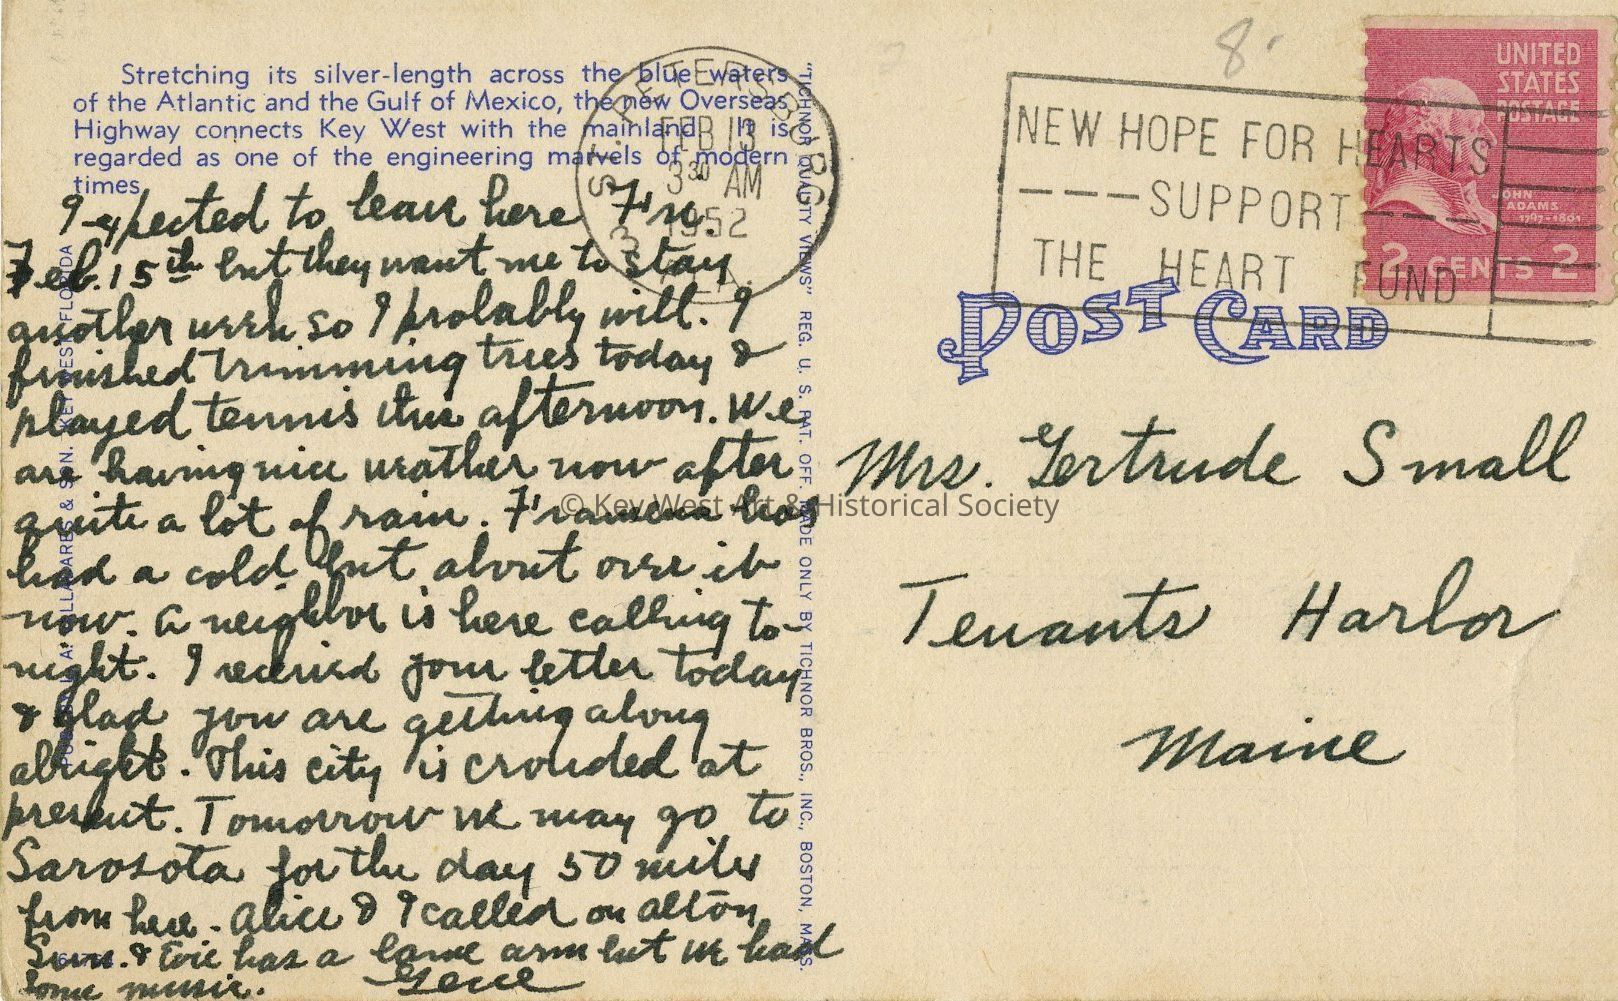 Stretching its silver-length across the blue waters
of the Atlantic and the Gulf of Mexico, the new Overseas
Highway connects Key West with the mainland. It is
regarded as one of the engineering marvels of modern
times.
I expected to leave here Fri.
Feb. 15th but they want me to stay
another week so I probably will. I
finished trimming trees today &
played tennis this afternoon. We
are having nice weather now after
quite a lot of rain. has
had a cold but about over it
now. A neighbor is here calling to-
night. I received your letter today
& glad you are getting along
alright. This city is crowded at
present. Tomorrow we may go to
Sarosota for the day 50 miles
from here. Alice & I called on Alton
Sun. & Evie has a lame arm but we had
some music. Gene
PUB. BY A. VALLADARES & SON. KEY WEST, FLORIDA
"TICHNOR QUALITY VIEWS" REG. U. S. PAT. OFF. MADE ONLY BY TICHNOR BROS., INC., BOSTON, MASS.
ST. PETERSBURG
FEB 13
3 30 AM
1952
FLA.
8
NEW HOPE FOR HEARTS
----SUPPORT----
THE HEART FUND
UNITED
STATES
POSTAGE
JOHN
ADAMS
1797-1801
2 CENTS 2
POST CARD
Mrs. Gertrude Small
Tenants Harbor
Maine
© Key West Art & Historical Society